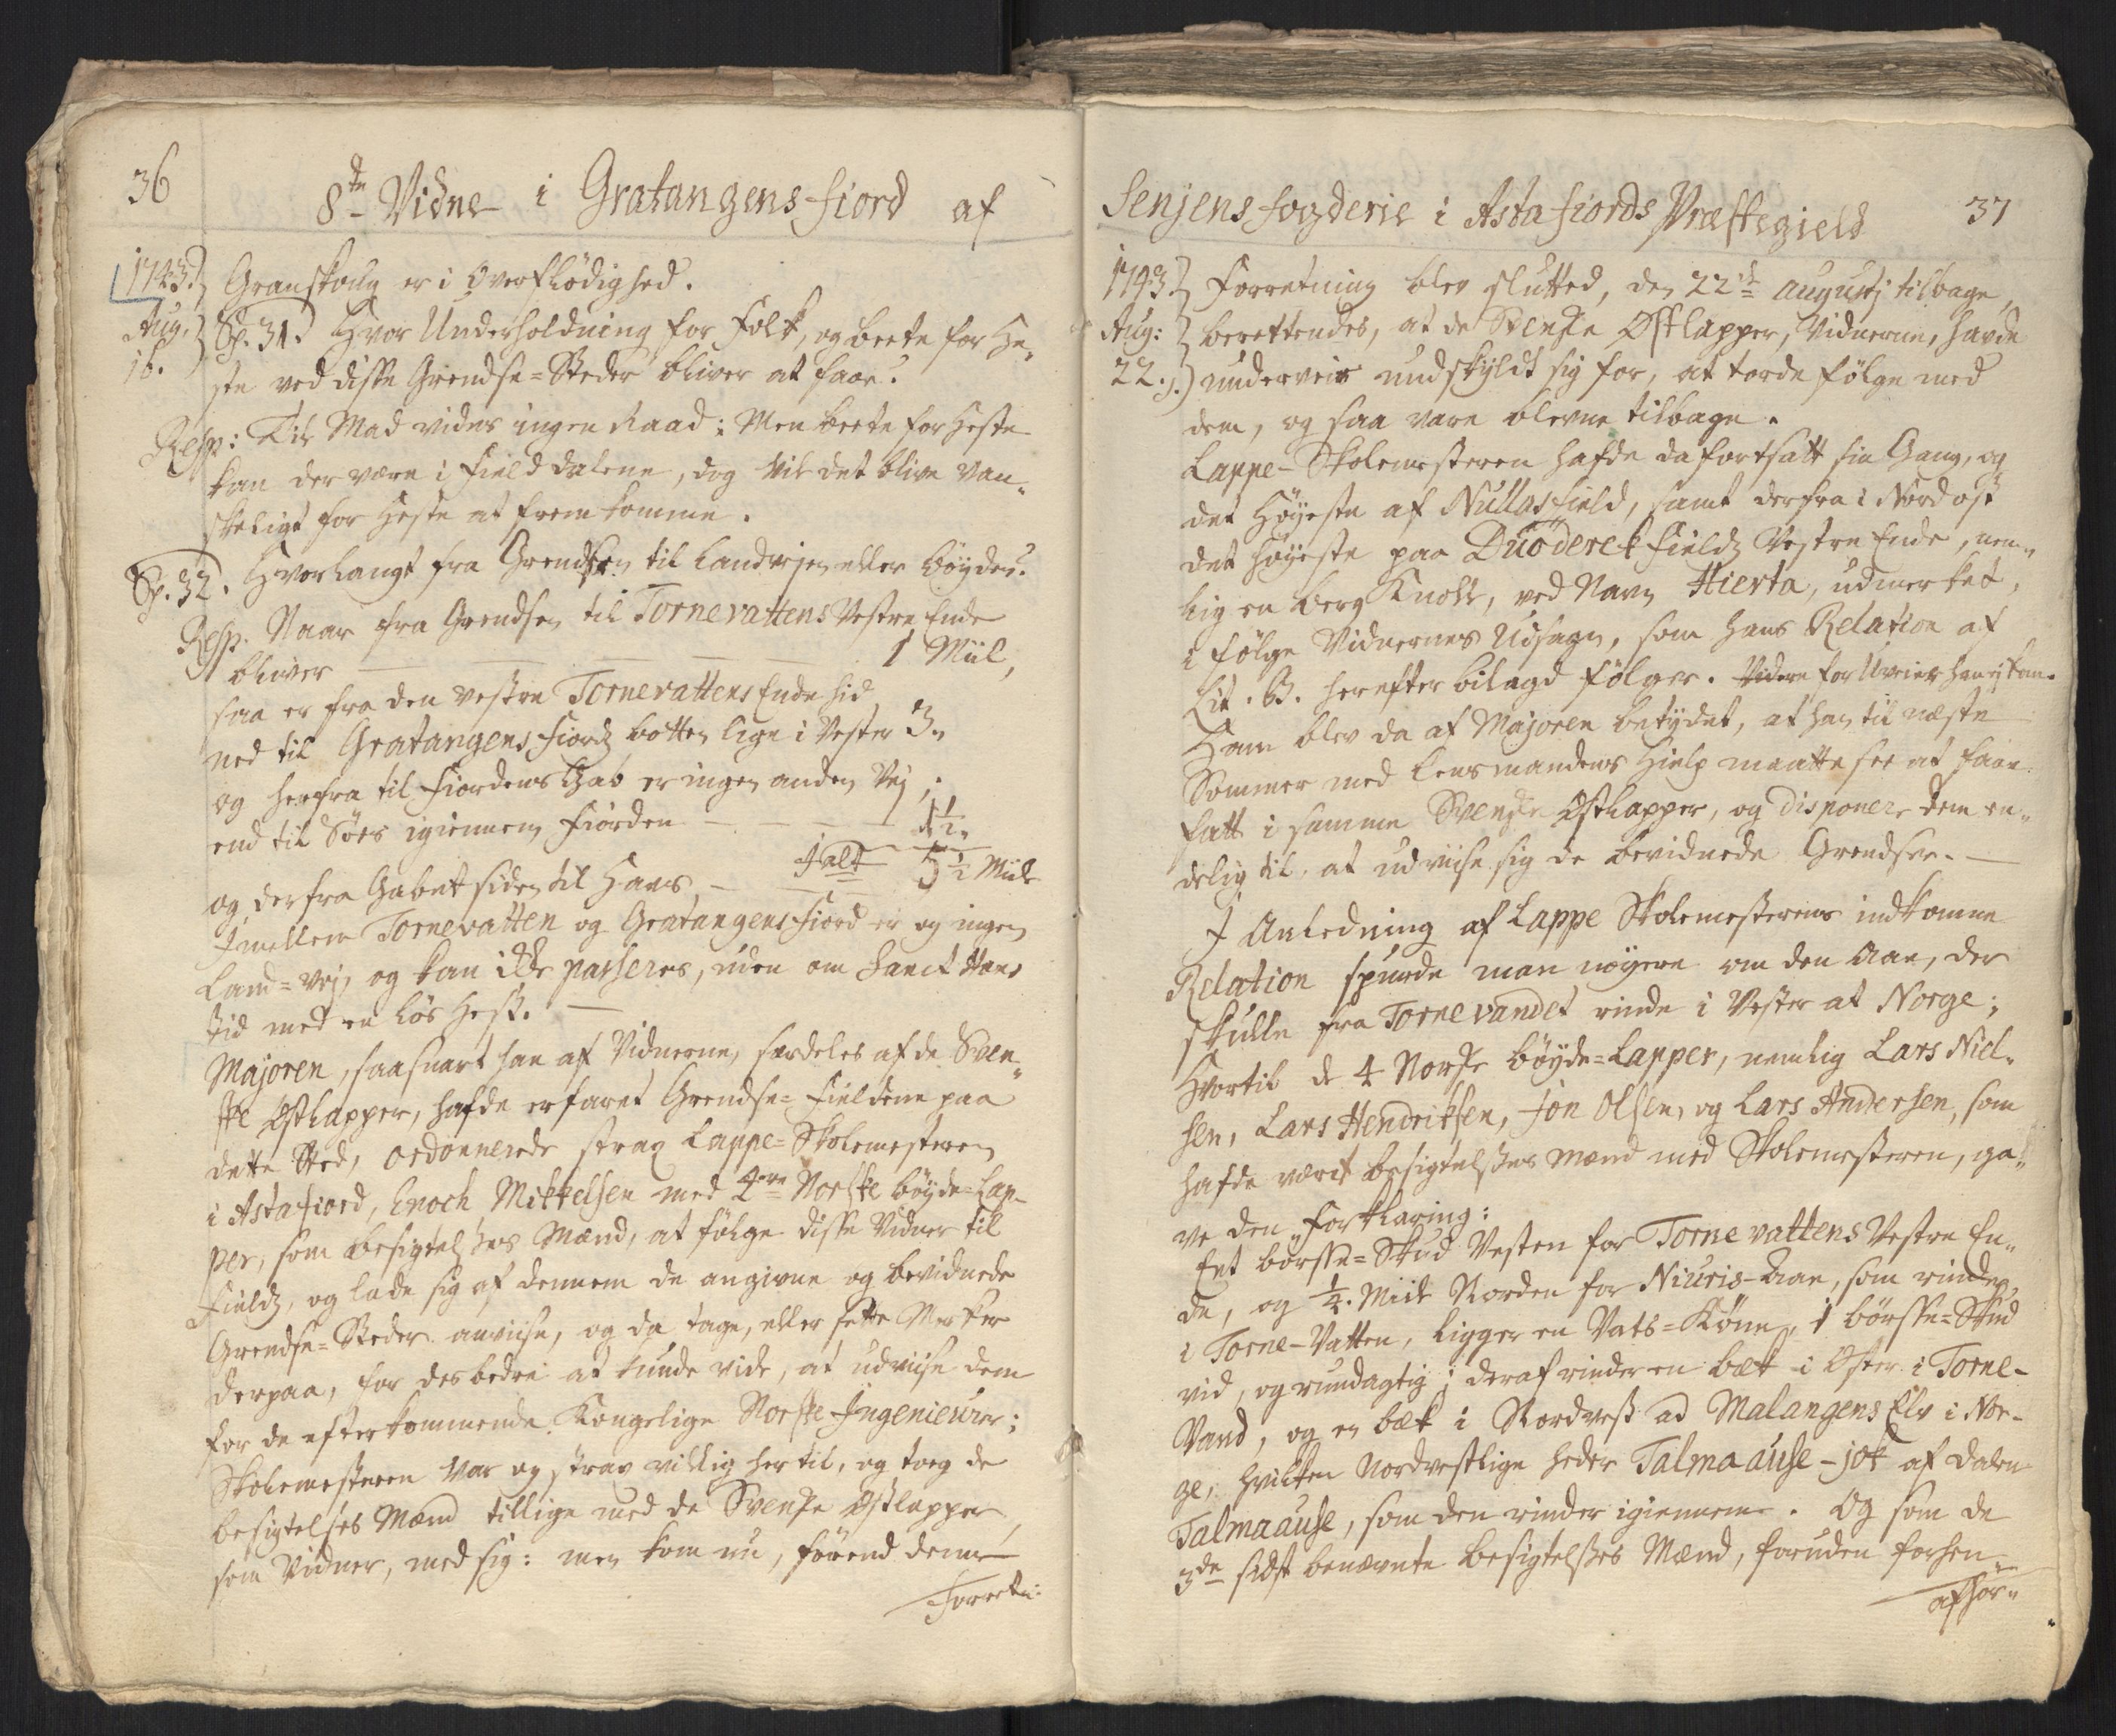 36
8de Vidne i Gratangens fiord af
1743. Granskoug er i Overflödighed.
Aug. Sp. 31. Hvor Underholdning for Folk, og beete for He-
16. ste ved disse Grendse-Steder bliver at faae?
Resp: Til Mad vides ingen Raad; Men beete for Heste
kan der være i Fielddalene, dog vil det blive van-
skeligt for Heste at fremkomme.
Sp. 32. Hvorlangt fra Grendsen til Landvejen eller Bøyder?
Resp. Naar fra Grendsen til Tornevattens Vestre Ende
bliver 1 Miil,
saa er fra den vestre Tornevattens Ende hid
ned til Gratangens fiords botten lige i Vester 3.
og herfra til Fiordens Gab er ingen anden Vej,
end til Söes igiennem Fiorden 1½.
og derfra Gabet siden til Havs Jalt 5½ Miil
Imellem Tornevatten og Gratangens Fiord er og ingen
Land-vej, og kan ikke passeres, uden om Sanct Hans
tid med en lös Hest.
Majoren, saasnart han af Vidnerne, særdeles af de Sven-
ske Østlapper, hafde erfaret Grendse-Fieldene paa
dette Sted, ordonnerede strax Lappe-Skolemesteren
i Astafiord, Enoch Mikkelsen med 4re Norske bøyde-Lap-
per, som besigtelsses Mænd, at følge disse Vidner til
Fields, og lade sig af dennem de angivne og bevidnede
Grendse-Steder anviise, og da tage, eller sette Merker
derpaa, for des bedre at kunde vide, at udviise dem
for de efterkommende Kongelige Norske Ingenieurer;
Skolemesteren var og strax villig hertil, og toeg de
besigtelses Mænd tillige med de Svenske Østlapper,
som Vidner, med sig: men kom nu, förend denne
Forretn:
Senjens fogderie i Astafiords Præstegield 37
1743. Forretning blev slutted, den 22de augustj tilbage,
Aug: berettendes, at de Svenske Østlapper, Vidnerne, havde
22. underveis undskyldt sig for, at torde følge med
dem, og saa vare blevne tilbage.
Lappe-Skolemesteren hafde da fortsatt sin Gang, og
det Höyeste af Nullasfield, samt derfra i Nordost
det høyeste paa Duöderek fields Vestre Ende, nem-
lig en berg Knolt, ved Navn Hierta, udmerket,
i følge Vidnernes Udsagn, som hans Relation af
Lit. B. herefter bilagd følger. Videre for Uveier han ej kom.
Ham blev da af Majoren betydet, at han til næste
Sommer med Lensmandens Hielp maatte see at faae
fatt i samme Svenske Østlapper, og disponere dem en-
delig til, at udviise sig de bevidnede Grendser.
I Anledning af Lappe Skolemesterens indkomne
Relation spurde man nøyere om den Aae, der
skulle fra Tornevandet rinde i Vester at Norge;
Hvortil de 4 Norske bøyde-Lapper, nemlig Lars Niel-
sen, Lars Hendriksen, Jon Olsen, og Lars Andersen, som
hafde været besigtelsses Mænd med Skolemesteren, ga-
ve den Forklaring:
Eet børsse-Skud Vesten for Torne vattens Vestre En-
de, og ¼. Miil Norden for Niuris-Aae, som rinder
i Torne-Vatten, ligger en Vats-Kønn, 1 börsse-Skud
vid, og rundagtig; deraf rinder en bæk i Øster i Torne-
Vand, og en bæk i Nordvest ad Malangens Elv i Nor-
ge, hvilken Nordvestlige heder Talmaause-jok af dalen
Talmaause, som den rinder igiennem. Og som de
3de sidst benævnte besigtelsses Mænd, foruden forhen-
afhör-